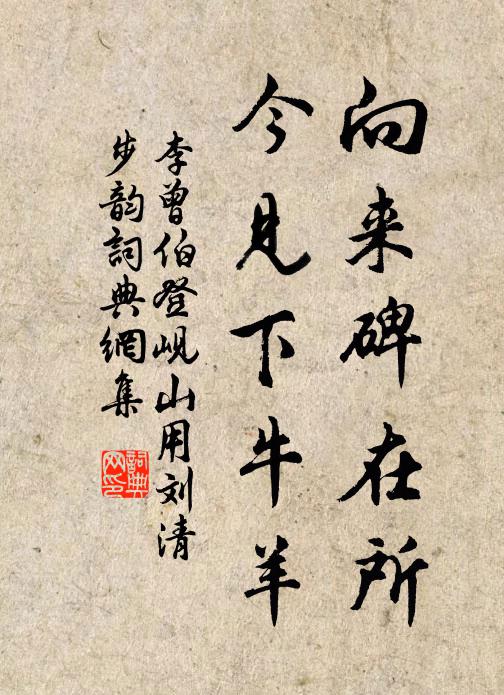 向来碑在所
今見下牛羊
李曾伯登峴山用刘清
步韵詞典網集
詞典
网